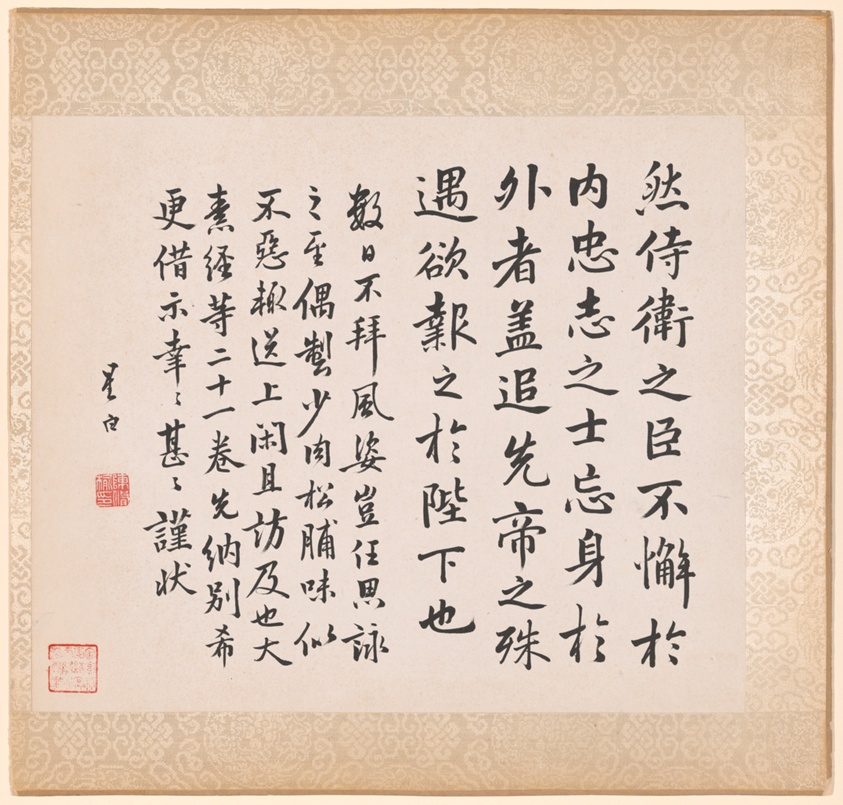 然侍衛之臣不懈於
内忠志之士忘身於
外者盖追先帝之殊
遇欲報之於陛下也
數日不拜風姿豈任思詠
之至偶製少肉松脯味似
不惡輙送上闲且訪及也大
素经等二十一卷先纳别希
更借示幸〻甚〻謹状
星白